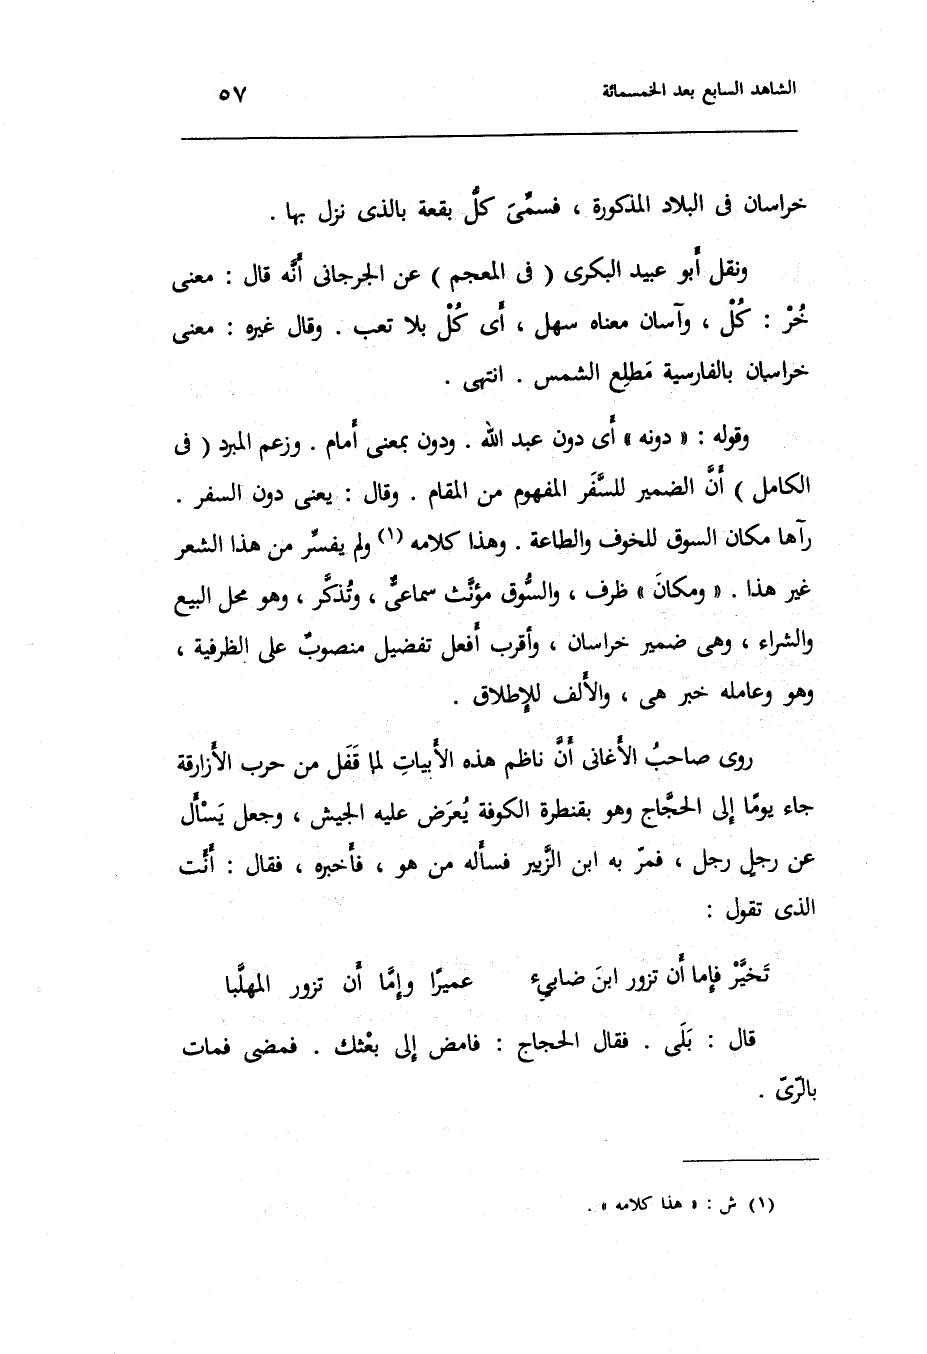 الشاهد السابع بعد الخمسمائة ٥٧
خراسان فى البلاد المذكورة ، فسمِّىَ كلُّ بقعة بالذى نزل بها .
ونقل أبو عبيد البكرى ( فى المعجم ) عن الجرجانى أنَّه قال : معنى
خُرْ : كُلْ ، وآسان معناه سهل ، أى كُلْ بلا تعب . وقال غيره : معنى
خراسان بالفارسية مَطلِع الشمس . انتهى .
وقوله : « دونه » أى دون عبد الله . ودون بمعنى أمام . وزعم المبرد ( فى
الكامل ) أنَّ الضمير للسَّفَر المفهوم من المقام . وقال : يعنى دون السفر .
رآها مكان السوق للخوف والطاعة . وهذا كلامه (١) ولم يفسِّر من هذا الشعر
غير هذا . « ومكانَ » ظرف ، والسُّوق مؤنَّث سماعىٌّ ، وتُذكَّر ، وهو محل البيع
والشراء ، وهى ضمير خراسان ، وأقرب أفعل تفضيل منصوبٌ على الظرفية ،
وهو وعامله خبر هى ، والألف للإطلاق .
روى صاحبُ الأغانى أنَّ ناظم هذه الأبياتِ لما قَفَل من حرب الأزارقة
جاء يومًا إلى الحجَّاج وهو بقنطرة الكوفة يُعرَض عليه الجيش ، وجعل يَسْأل
عن رجلٍ رجل ، فمرّ به ابن الزَّبير فسأله من هو ، فأخبره ، فقال : أَنْت
الذى تقول :
تَخيَّرْ فإما أن تزور ابنَ ضابىء عميرًا وإمَّا أن تزور المهلَّبا
قال : بَلَى . فقال الحجاج : فامض إلى بعْثك . فمضى فمات
بالرّىّ .
(١) ش : « هذا كلامه » .